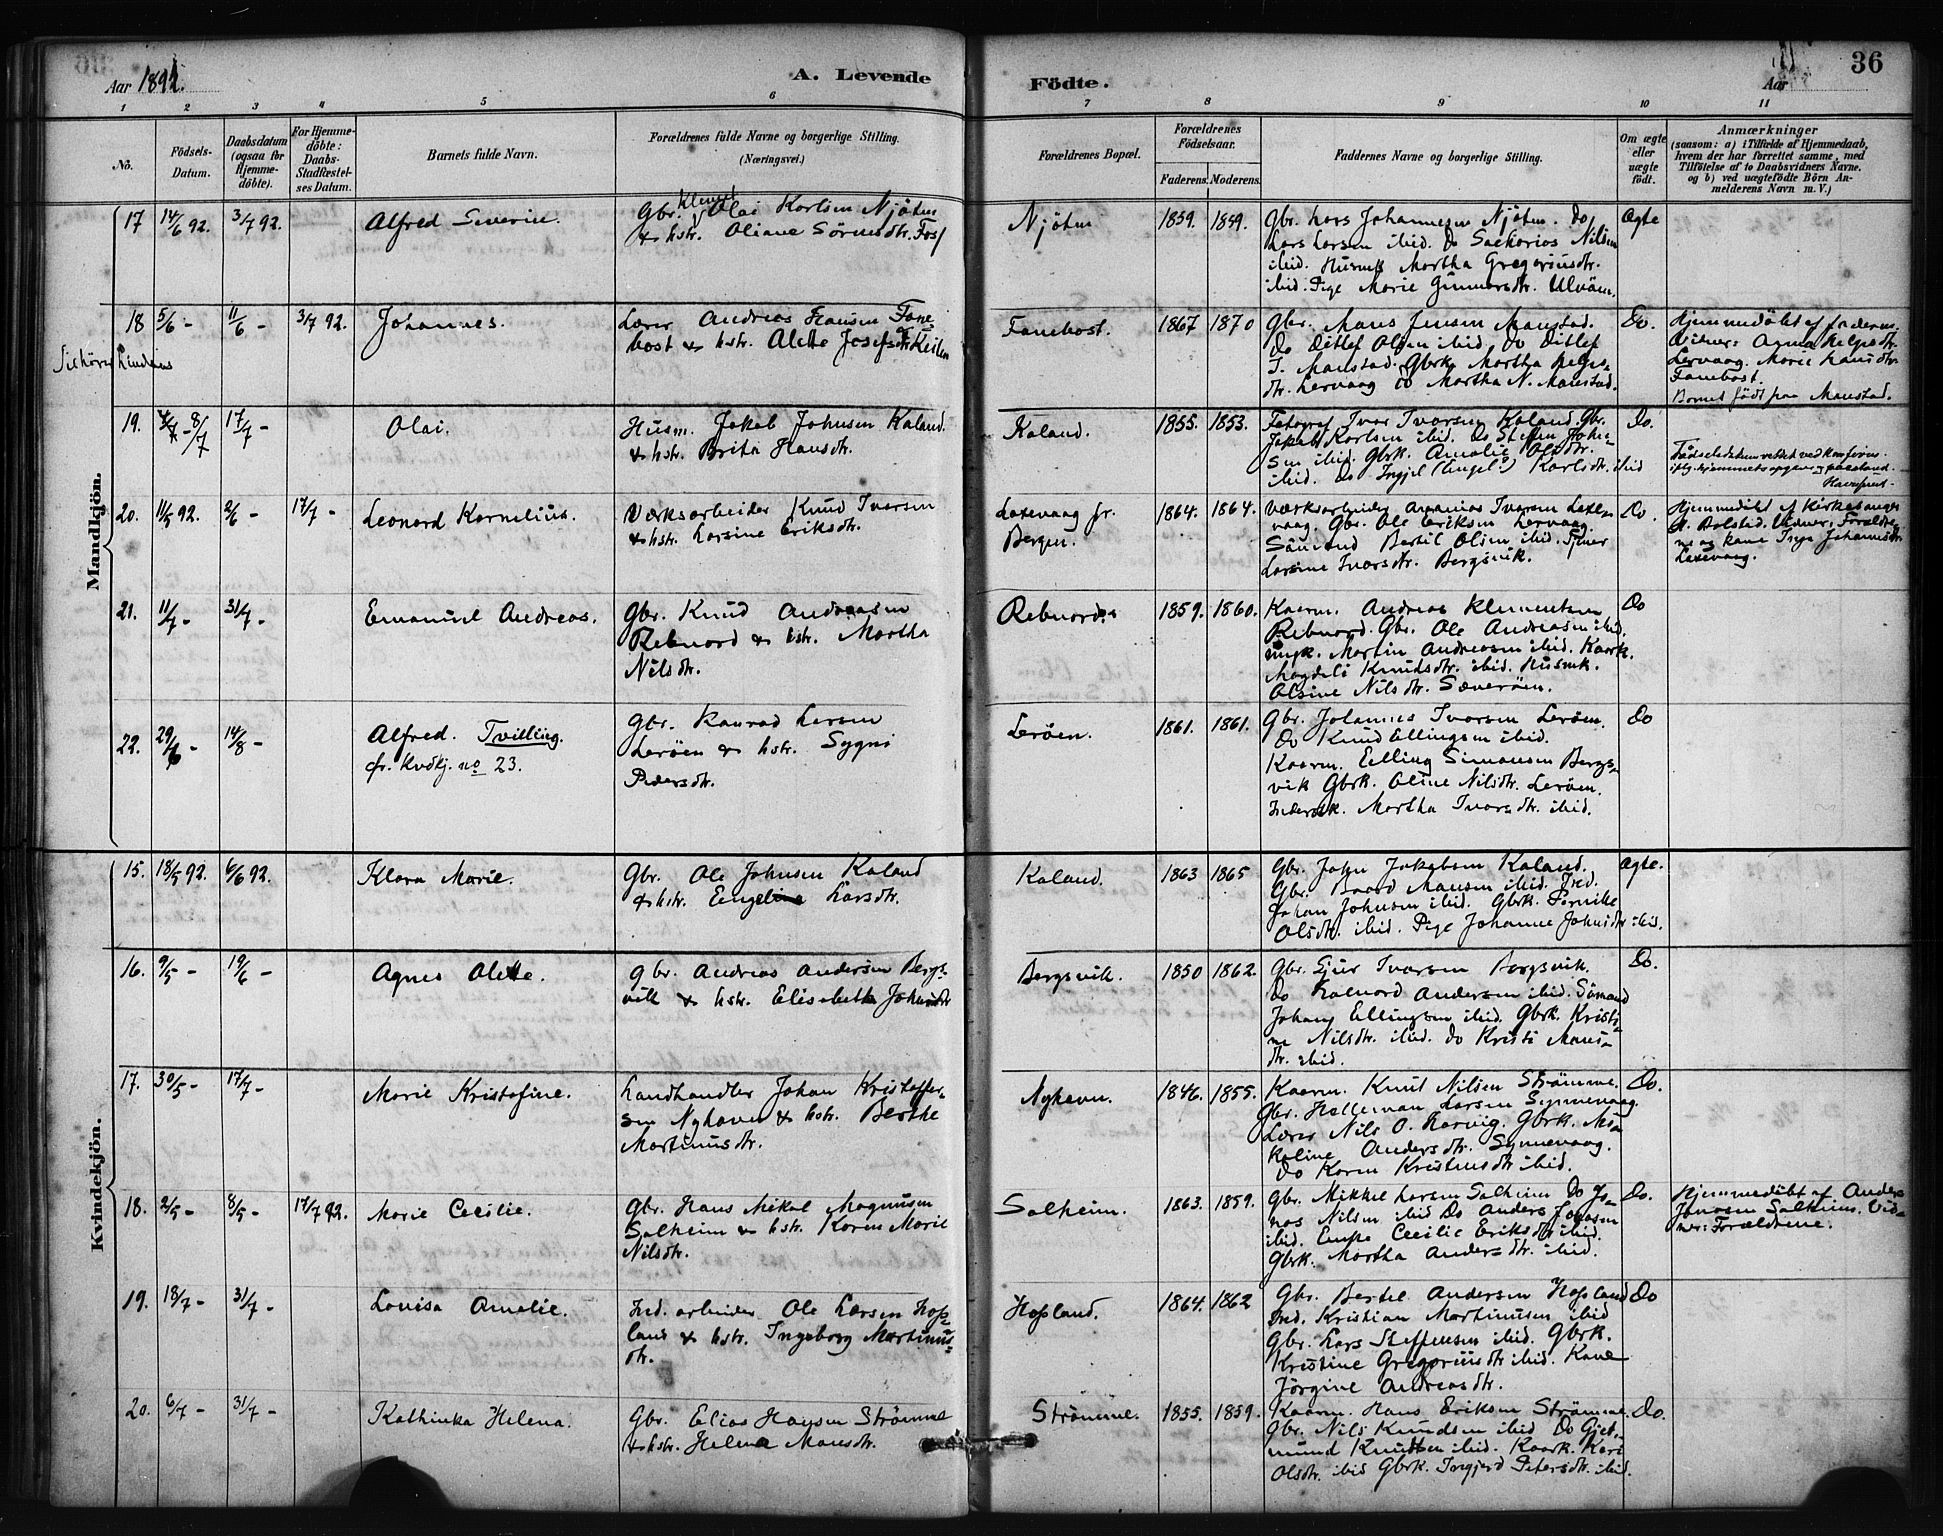 Aar 1892.
A. Levende
Födte.
Aar
36
1 2 3 4 5 6 7 8 9 10 11
Nö.
Födsels-
Datum.
Daabsdatum
(ogsaa for
Hjemme-
döbte).
For Hjemme-
döbte:
Daabs-
Stadfæstel-
ses Datum.
Barnets fulde Navn.
Forældrenes fulde Navne og borgerlige Stilling.
(Næringsvei.)
Forældrenes Bopæl.
Forældrenes
Födselsaar.
Faderens. Moderens.
Faddernes Navne og borgerlige Stilling.
Om ægte
eller
uægte
födt.
Anmærkninger
(saasom: a) i Tilfælde af Hjemmedaab,
hvem der har forrettet samme, med
Tilföielse af to Daabsvidners Navne.
og b) ved uægtefödte Börn An-
melderens Navn m. V.)
Mandkjön.
17 14/6 92. 3/7 92.
Alfred Severin.
Gbr. Olai Karlsen Njöten
& hstr. Oliane Sörensdtr. Fosf
Njöten
1859. 1859.
Gbr. Lars Johannesen Njöten. Do
Lars Larsen ibid. Do Sackarias Nilsen
ibid. Husmk Martha Gregoriusdtr.
ibid. Pige Marie Gunnarsdtr. Ulvöen.
Ægte
18 5/6 - 11/6 - 3/7 92.
Johannes.
Lærer Andreas Hansen Fane-
bost & hstr. Alette Josefsdtr
Fanebost.
1867 1870
Gbr. Mons Jensen Manstad.
Do Ditlef Olsen ibid. Do Ditlef
J. Manstad. Gbrk Martha Helges-
dtr. Lervaag Do Martha N. Manstad.
Do.
Hjemmedöbt af faderen.
Vidner: Anna Helgesdtr.
Lervaag. Marie Hansdtr.
Fanebost.
Barnet födt paa Manstad.
19. 8/7 17/7 -
Olai.
Husm. Jakob Johnsen Kaland.
& hstr. Brita Hansdtr.
Kaland.
1855. 1853.
Fotograf Ivar Ivarsen Kaland. Gbr.
Jakob Karlsen ibid. Do Steffen John-
sen ibid. Gbrk. Amalie Olsdtr.
ibid. Do Ingjel (Engel?) Karlsdtr. ibid
Do.
20. 11/5 92. 2/6 - 17/7 -
Leonard Kornelius.
Værksarbeider Knud Ivarsen
& hstr. Larsine Eriksdtr.
Laxevaag pr.
Bergen.
1864. 1864.
Værksarbeider Ananias Ivarsen Laxe-
vaag. Gbr. Ole Eriksen Lervaag.
Sömand Bertil Olsen ibid. Tjener
Larsine Ivarsdtr. Bergsvik.
Do.
Hjemmedöbt af Kirkesanger
Rolstad. Vidner: Forældre-
ne og kone Inga Johannesdtr
Laxevaag.
21. 11/7 - 31/7 -
Emanuel Andreas.
Gbr. Knud Andreasen
Rebnord & hstr. Martha
Nilsdtr.
Rebnord.
1859. 1860.
Kaarm. Andreas Klementsen
Rebnord. Gbr. Ole Andreasen ibid.
Ungk. Martin Andreasen ibid. Kaark.
Magdeli Knudsdtr. ibid. Husmk.
Olsine Nilsdtr. Sæveröen.
Do
22. 29/6 - 14/8 -
Alfred. Tvilling.
cfr. Kvdkj. no 23.
Gbr. Konrad Larsen
Leröen & hstr. Sygni
Pedersdtr.
Leröen.
1861. 1861.
Gbr. Johannes Ivarsen Leröen.
Do Knud Ellingsen ibid.
Kaarm. Elling Simonsen Bergs-
vik Gbrk. Oline Nilsdtr. Leröen.
Inderstk. Martha Ivarsdtr. ibid.
Do
Kvindekjön.
15. 18/5 92. 6/6 92.
Klara Marie.
Gbr. Ole Johnsen Kaland
& hstr. Engeline Larsdtr.
Kaland.
1863 1865
Gbr. John Jakobsen Kaland.
Gbr. Baard Mansen ibid. Ind.
Johan Johnsen ibid. Gbrk. Pernille
Olsdtr. ibid. Pige Johanne Johnsdtr ibid.
Ægte.
16. 9/5 - 19/6 -
Agnes Alette.
Gbr. Andreas Andersen Bergs-
vik & hstr. Elisabeth Johnsdtr
Bergsvik.
1850 1862.
Gbr. Sjur Ivarsen Bergsvik.
Do Kolnord Andersen ibid. Sömand
Johan Ellingsen ibid. Gbrk. Kristi-
ne Nilsdtr. ibid. Do Kristi Mons-
dtr. ibid.
Do.
17. 30/5 - 17/7 -
Marie Kristofine.
Landhandler Johan Kristoffer-
sen Nyhavn & hstr. Berthe
Martinusdtr.
Nyhavn.
1846. 1855.
Kaarm. Knut Nilsen Strömme.
Gbr. Halleman Larsen Synnevaag.
Lærer Nils O. Narvig. Gbrk. Mi-
kaline Andersdtr. Synnevaag.
Do Karen Kristensdtr ibid.
Do.
18. 2/5 - 8/5 - 17/7 92.
Marie Cecilie.
Gbr. Hans Mikal Magnusen
Solheim & hstr. Karen Marie
Nilsdtr.
Solheim.
1863. 1859.
Gbr. Mikkel Larsen Solheim Do Jo-
nas Nilsen ibid Do Anders Jonasen
ibid. Enke Cecilie Eriksdtr ibid.
Gbrk. Martha Andersdtr. ibid.
Do.
Hjemmedöbt af Anders
Jonasen Solheim. Vid-
ner: Forældrene.
19. 18/7 - 31/7 -
Lovisa Amalie.
Ind. arbeider Ole Larsen Hop-
land & hstr. Ingeborg Martinus-
dtr.
Hopland.
1864. 1862
Gbr. Bertel Andersen Hopland
Ind. Kristian Martinusen ibid
Gbr. Lars Steffensen ibid. Gbrk.
Kristine Gregoriusdtr ibid. Kone
Jörgine Andreasdtr.
Do
20. 6/7 - 31/7 -
Kathinka Helena.
Gbr. Elias Hansen Strömme
& hstr. Helena Monsdtr.
Strömme.
1855. 1859.
Kaarm. Hans Eriksen Strömme.
Gbr. Nils Knudsen ibid Do Gjet-
mund Knudsen ibid. Kaark. Kari
Olsdtr. ibid Gbrk. Ingjerd Petersdtr. ibid.
Do.